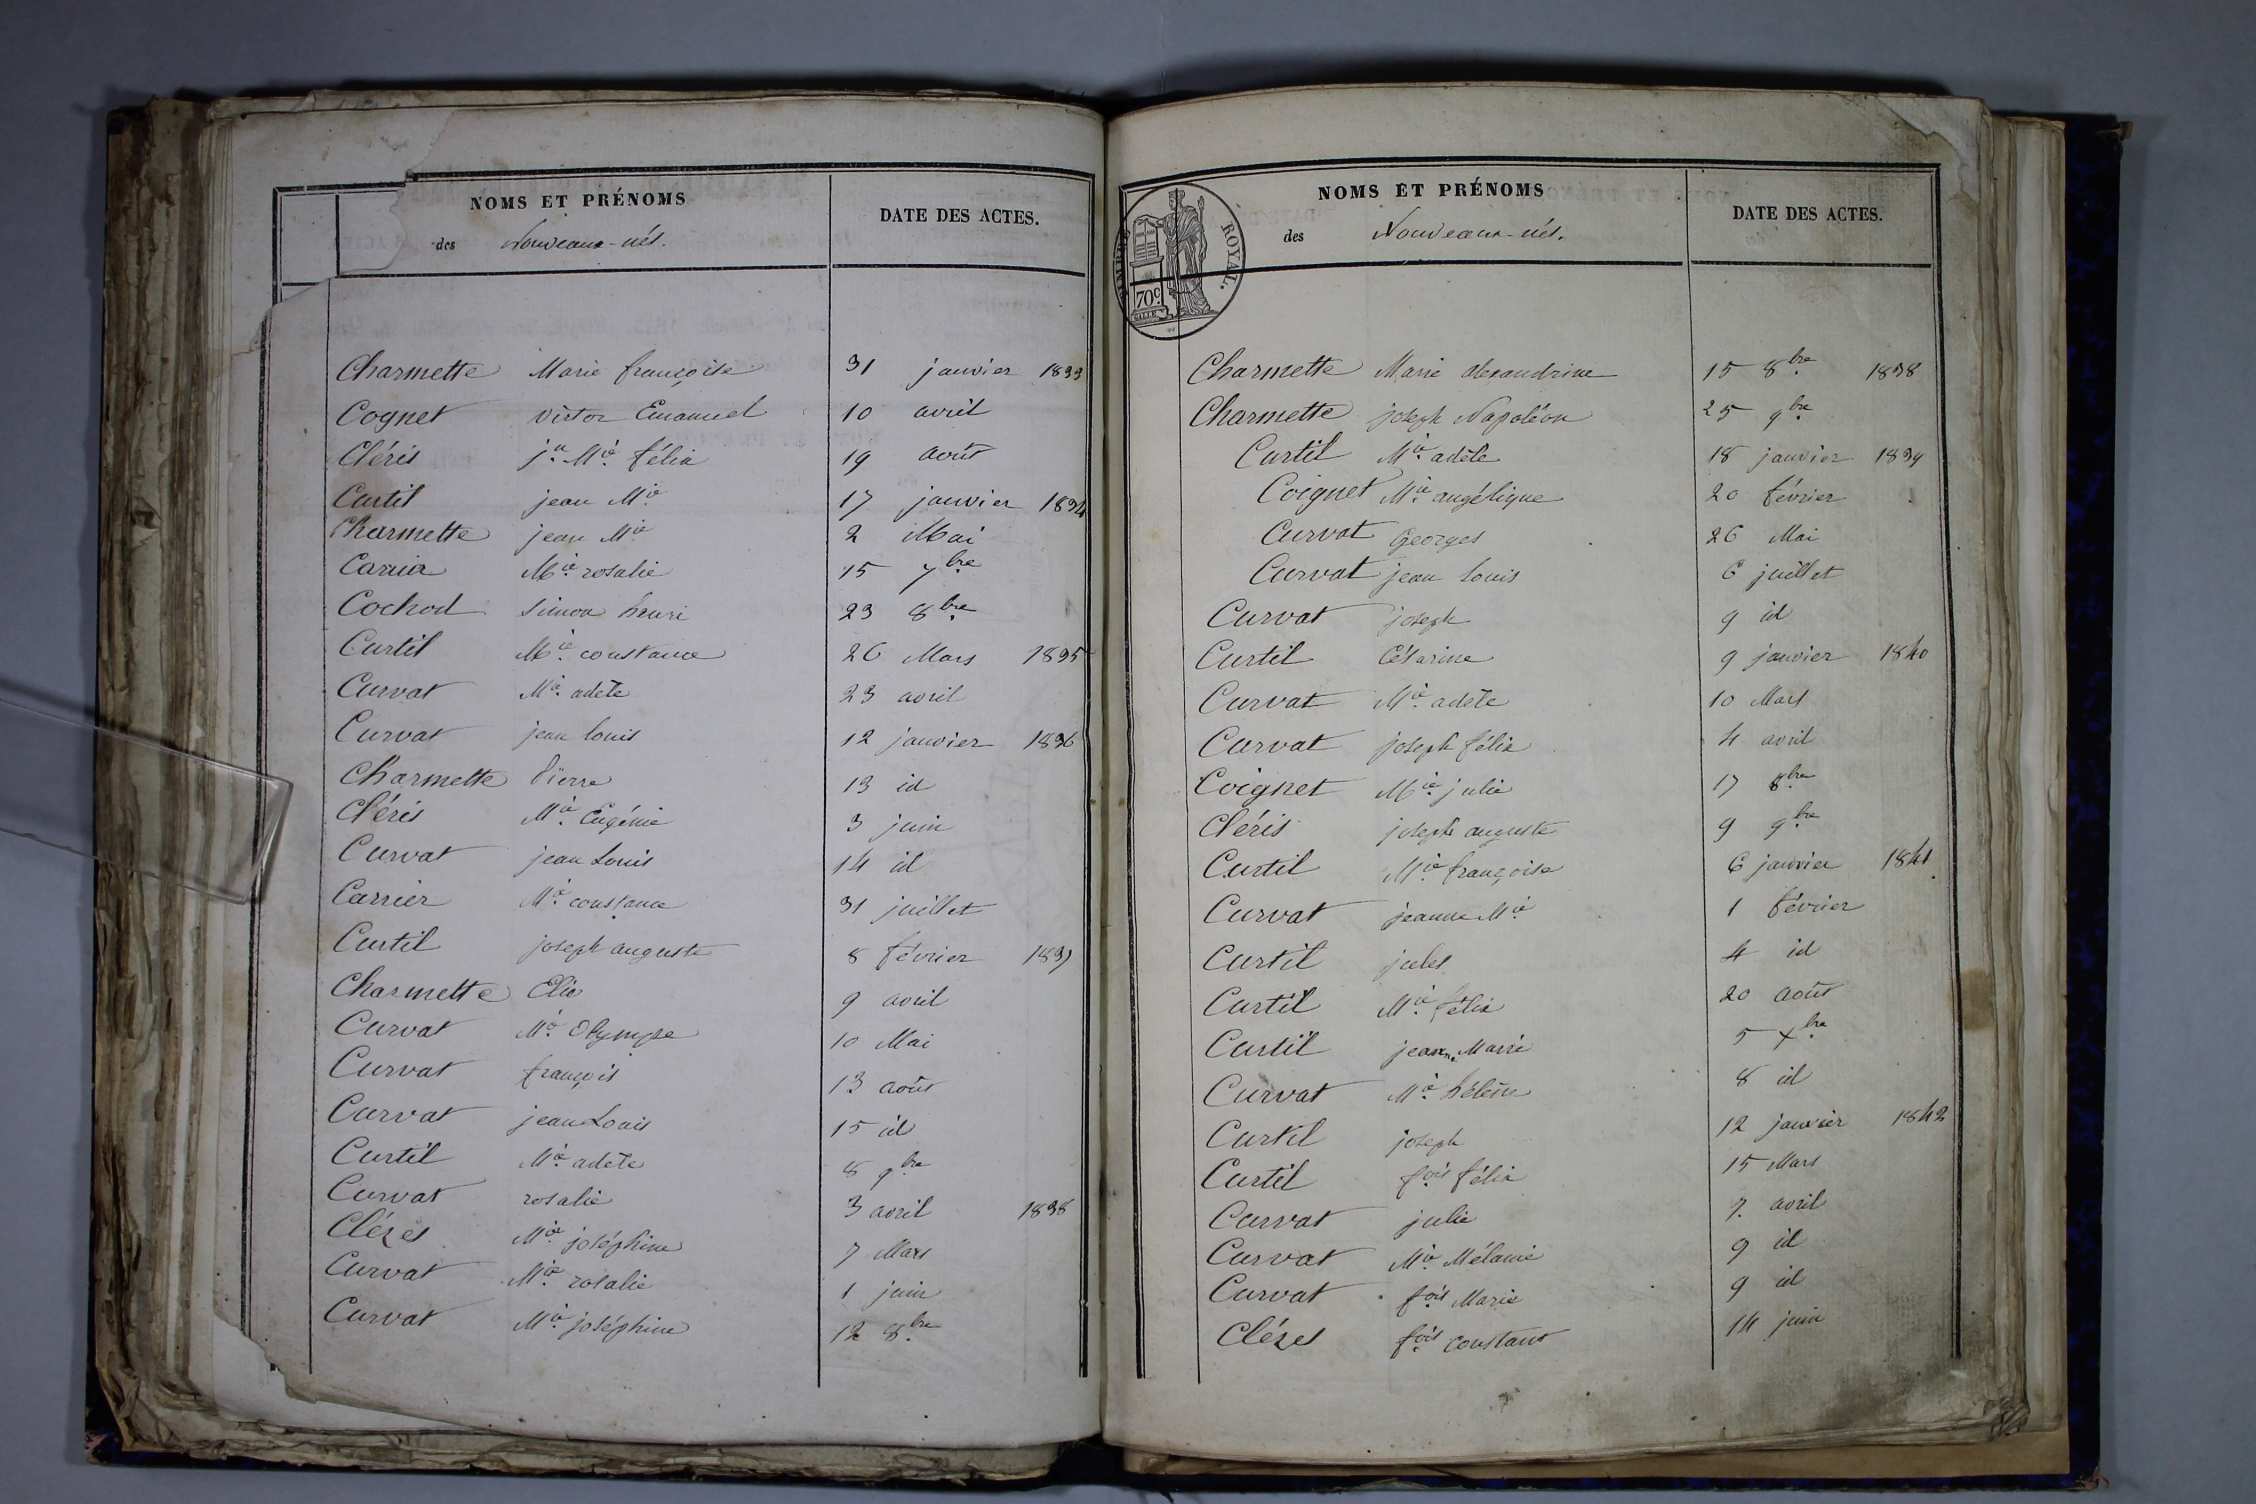 NOMS ET PRÉNOMS
DATE DES ACTES.
des Nouveaux-nés.
Charmette Marie françoise 31 janvier 1833
Cognet victor Emanuel 10 avril
Cléris j.ne M.ie félix 19 août
Curtil jean M.ie 17 janvier 1834
Charmette jean M.ie 2 Mai
Carrier M.ie rosalie 15 7bre
Cochod Simon henri 23 8bre
Curtil M.ie constance 26 Mars 1835
Curvat M.ie adèle 23 avril
Curvat jean louis 12 janvier 1836
Charmette Pierre 13 id
Cléris M.ie Eugénie 3 juin
Curvat jean Louis 14 id
Carrier M.ie constance 31 juillet
Curtil joseph auguste 8 février 1837
Charmette Elie 9 avril
Curvat M.ie Olympe 10 Mai
Curvat françois 13 août
Curvat jean Louis 15 id
Curtil M.ie adèle 8 9bre
Curvat rosalie 3 avril 1838
Clézes M.ie joséphine 7 Mars
Curvat M.ie rosalie 1 juin
Curvat M.ie joséphine 12 8bre
NOMS ET PRÉNOMS
DATE DES ACTES.
des Nouveaux-nés.
TIMBRE ROYAL.
70c
Charmette Marie alexandrine 15 8bre 1838
Charmette joseph Napoléon 25 9bre
Curtil M.ie adèle 18 janvier 1839
Coignet M.ie angélique 20 février
Curvat Georges 26 Mai
Curvat jean louis 6 juillet
Curvat joseph 9 id
Curtil Césarine 9 janvier 1840
Curvat M.ie adèle 10 Mars
Curvat joseph félix 4 avril
Coignet M.ie julie 17 8bre
Cléris joseph auguste 9 9bre
Curtil M.ie françoise 6 janvier 1841
Curvat jeanne M.ie 1 février
Curtil jules 4 id
Curtil M.ie félix 20 août
Curtil jeanne Marie 5 Xbre
Curvat M.ie hélène 8 id
Curtil joseph 12 janvier 1842
Curtil f.ois félix 15 Mars
Curvat julie 7 avril
Curvat M.ie Mélanie 9 id
Curvat f.ois Marie 9 id
Clézes f.ois constant 14 juin